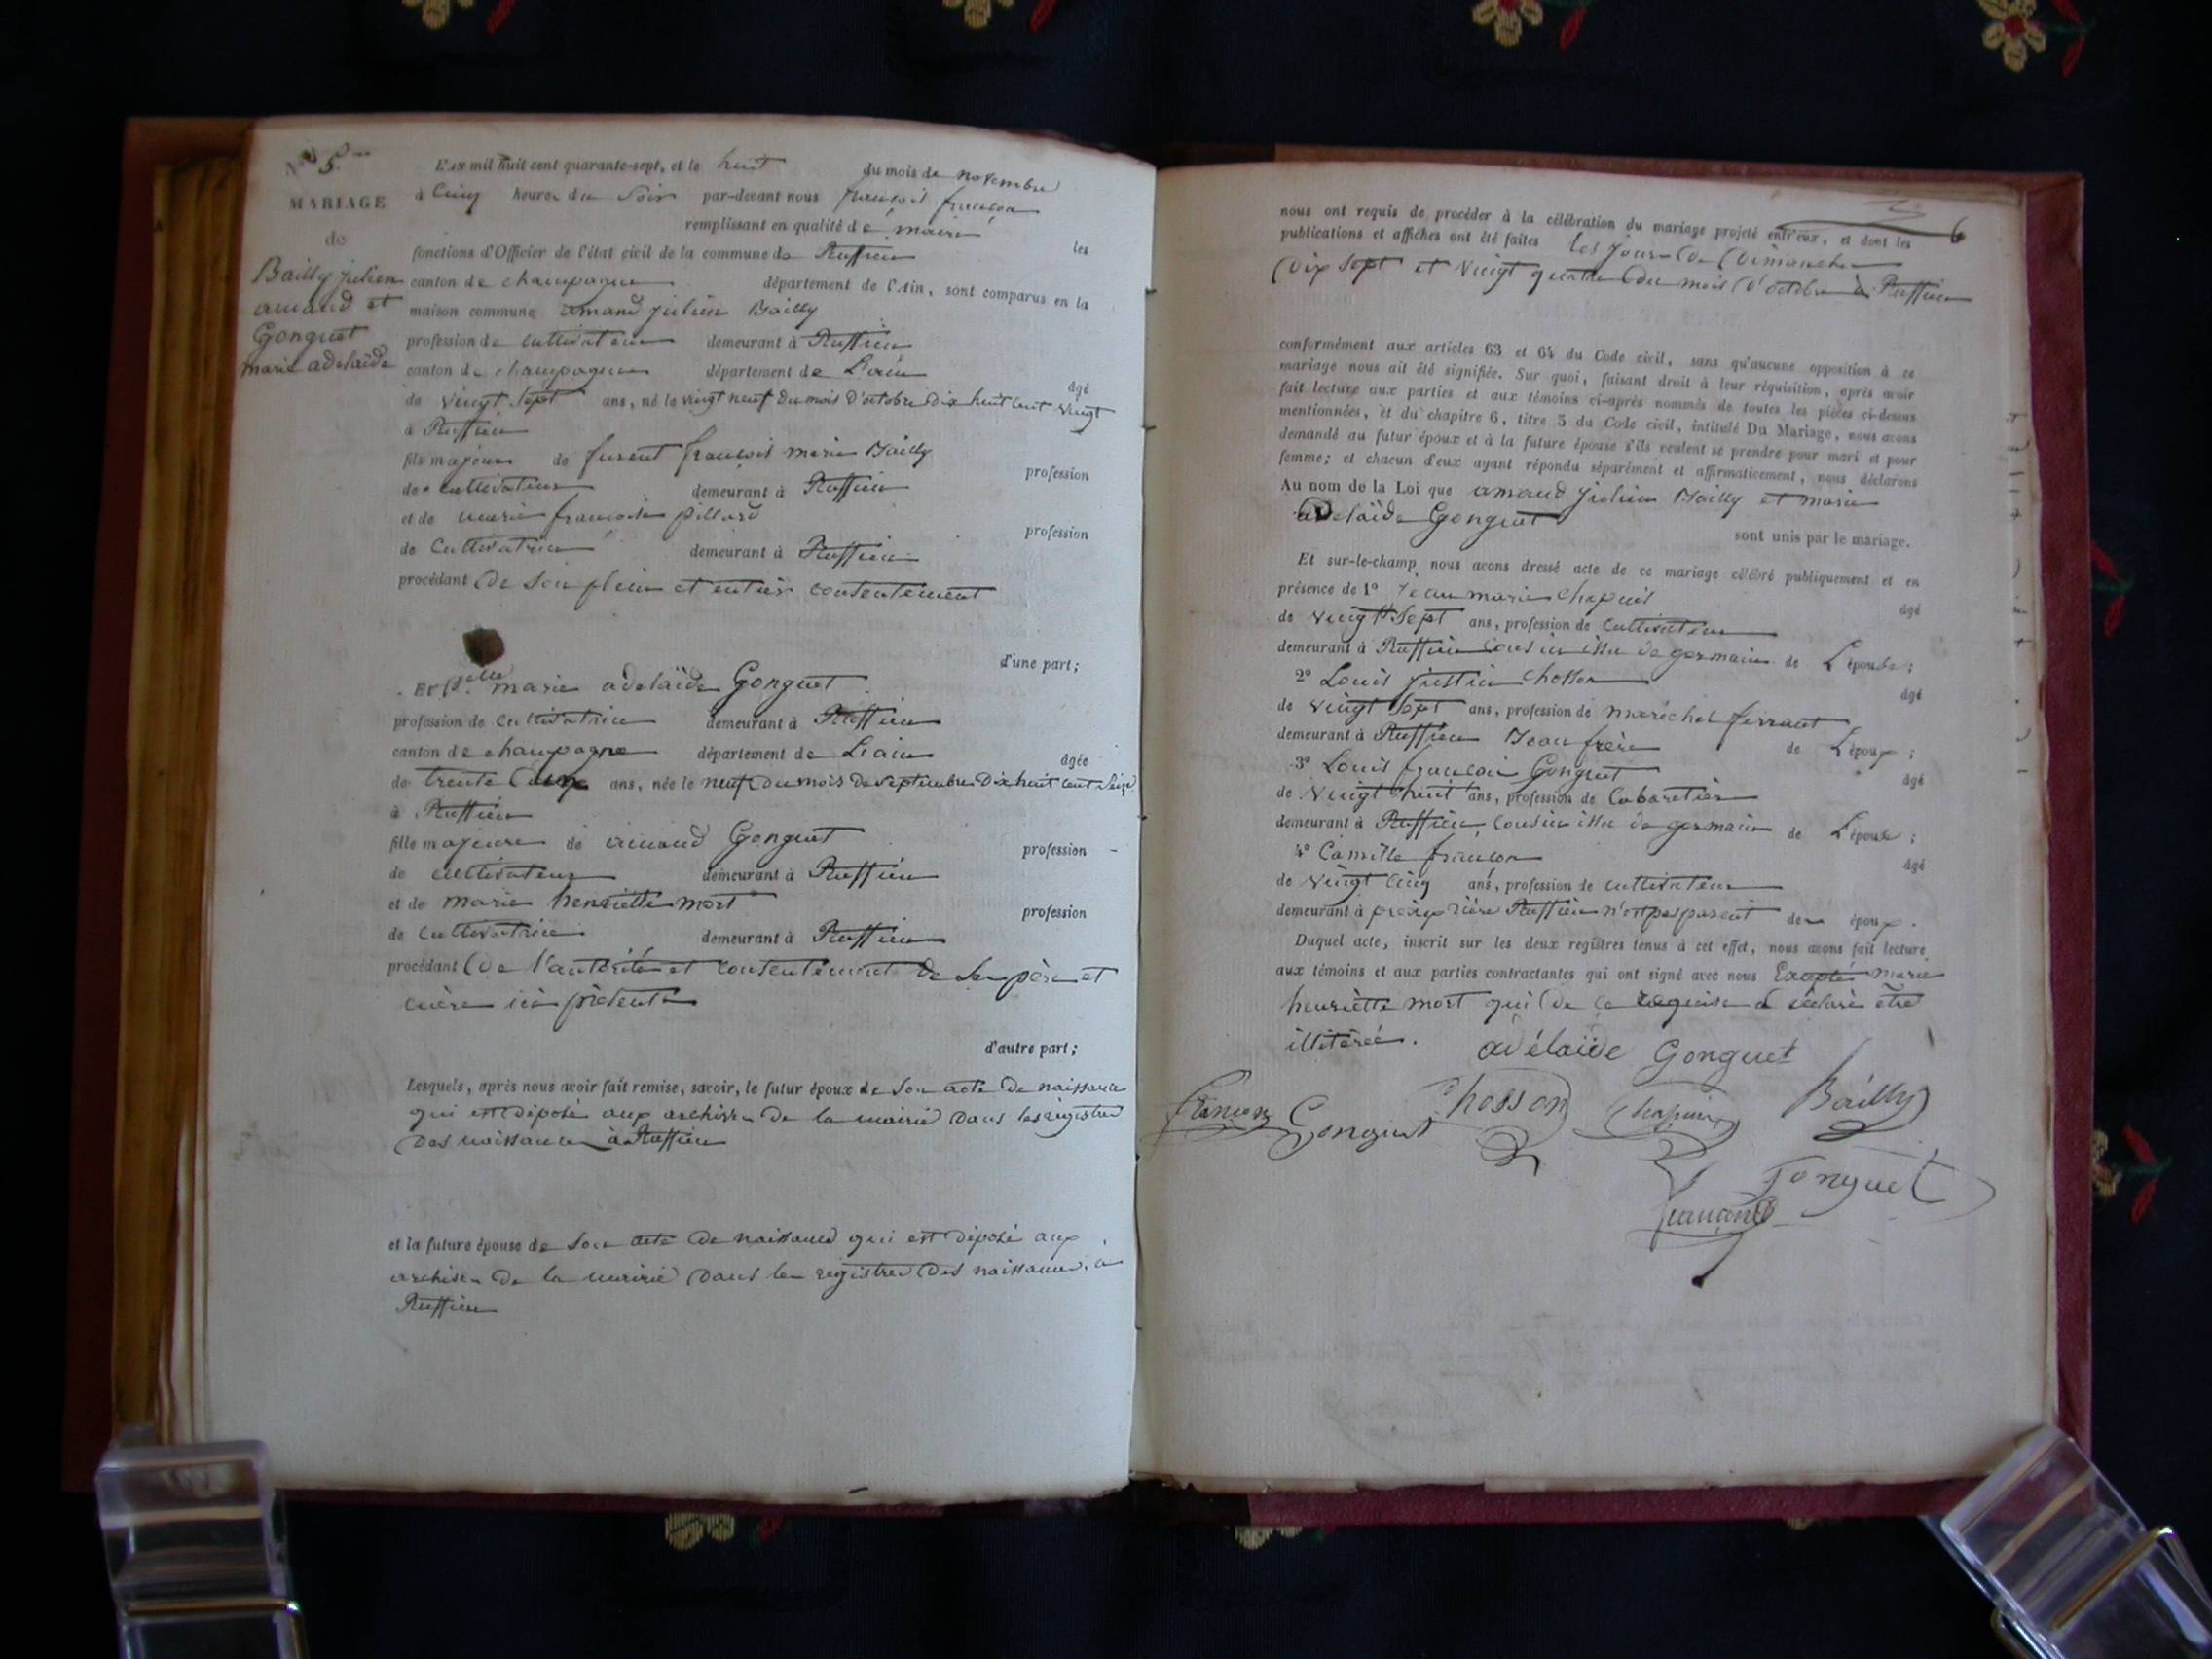 N° 5.
MARIAGE
de
Bailly julien
amand et
Gonguet
marie adelaïde
L'AN mil huit cent quarante-sept, et le huit du mois de novembre
à Cinq heures du Soir par-devant nous françois françon
remplissant en qualité de maire les
fonctions d'Officier de l'état civil de la commune de Ruffieu
canton de champagne département de l'Ain, sont comparus en la
maison commune amand julien Bailly
profession de cultivateur demeurant à Ruffieu
canton de champagne département de L'ain
âgé
de vingt Sept ans, né le vingt neuf du mois d'octobre dix huit cent vingt
à Ruffieu
fils majeur de furent françois marie Bailly
profession
de cultivateur demeurant à Ruffieu
et de marie françoise pillard
profession
de Cultivatrice demeurant à Ruffieu
procédant de Son plein et entier consentement
d'une part;
ET Delle marie adelaïde Gonguet
profession de cultivatrice demeurant à Ruffieu
canton de champagne département de L'ain
âgée
de trente ans, née le neuf du mois de Septembre Dix huit cent Seize
à Ruffieu
fille majeure de amand Gonguet
profession
de cultivateur demeurant à Ruffieu
et de marie henriette mort
profession
de cultivatrice demeurant à Ruffieu
procédant De l'autorité et consentement de Ses père et
mère ici présents
d'autre part;
Lesquels, après nous avoir fait remise, savoir, le futur époux de Son acte De naissance
qui est Déposé aux archives De la mairie Dans les registres
Des naissances à Ruffieu
et la future épouse de Son acte De naissance qui est Déposé aux
archives De la mairie Dans les registres Des naissances à
Ruffieu
6
nous ont requis de procéder à la célébration du mariage projeté entr'eux, et dont les
publications et affiches ont été faites les jours de Dimanche
Dix Sept et Vingt quatre Du mois D'octobre à Ruffieu
conformément aux articles 63 et 64 du Code civil, sans qu'aucune opposition à ce
mariage nous ait été signifiée. Sur quoi, faisant droit à leur réquisition, après avoir
fait lecture aux parties et aux témoins ci-après nommés de toutes les pièces ci-dessus
mentionnées, et du chapitre 6, titre 5 du Code civil, intitulé Du Mariage, nous avons
demandé au futur époux et à la future épouse s'ils veulent se prendre pour mari et pour
femme; et chacun d'eux ayant répondu séparément et affirmativement, nous déclarons
Au nom de la Loi que amand julien Bailly et marie
adelaïde Gonguet
sont unis par le mariage.
Et sur-le-champ nous avons dressé acte de ce mariage célébré publiquement et en
présence de 1° jean marie Chapuis
âgé
de vingt Sept ans, profession de Cultivateur
demeurant à Ruffieu cousin issu de germain de L'épouse;
2° Louis justin chosson
âgé
de vingt Sept ans, profession de maréchal ferrant
demeurant à Ruffieu Beau frère de L'époux;
3° Louis françois Gonguet
âgé
de Vingt huit ans, profession de Cabaretier
demeurant à Ruffieu, Cousin issu de germain de L'épouse;
4° Camille françon
âgé
de vingt cinq ans, profession de cultivateur
demeurant à Ruffieu n'est pas parent des époux.
Duquel acte, inscrit sur les deux registres tenus à cet effet, nous avons fait lecture
aux témoins et aux parties contractantes qui ont signé avec nous Excepté marie
henriette mort qui De ce requise a déclaré être
illitérée.
adélaïde Gonguet
françon Gonguet Chosson Chapuis Bailly
Gonguet